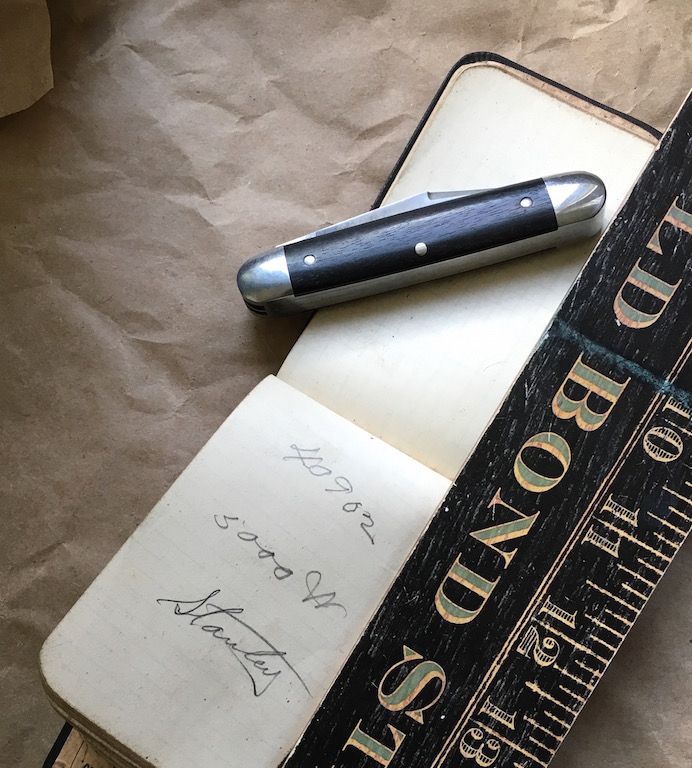 40902
5000
Stanley
LD BOND ST
10 11 12 13